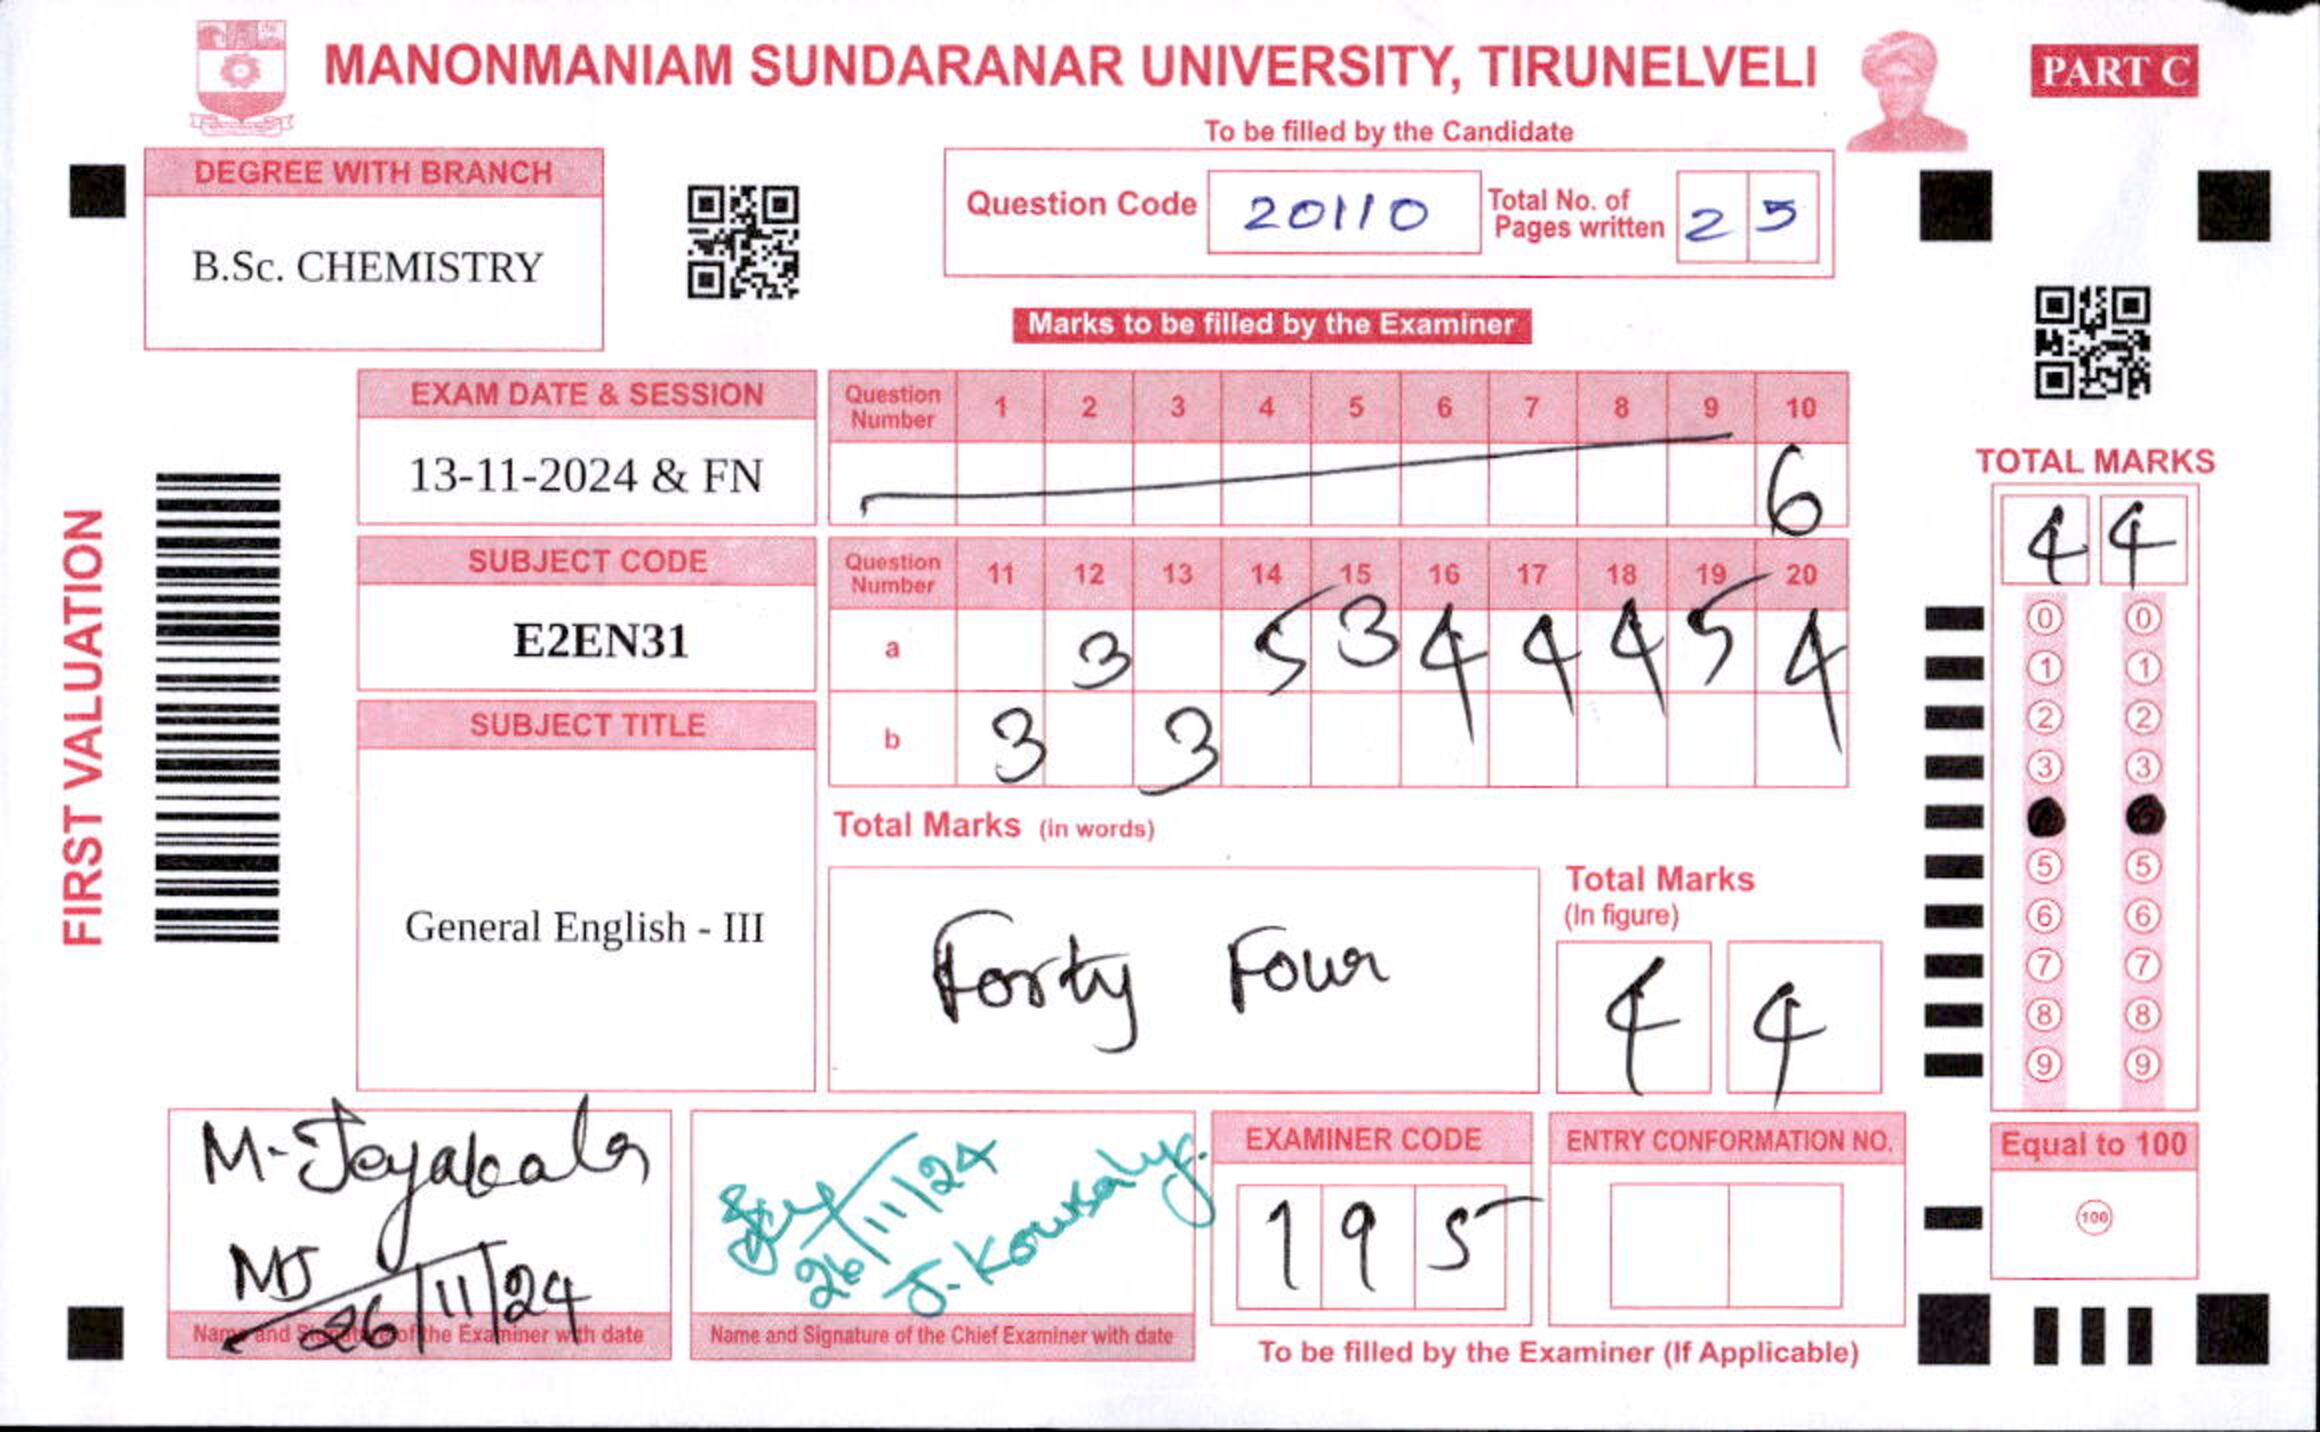 MANONMANIAM SUNDARANAR UNIVERSITY, TIRUNELVELI
PART C
To be filled by the Candidate
DEGREE WITH BRANCH
B.Sc. CHEMISTRY
Question Code 20110 Total No. of Pages written 2 5
Marks to be filled by the Examiner
EXAM DATE & SESSION
13-11-2024 & FN
Question Number 1 2 3 4 5 6 7 8 9 10
6
SUBJECT CODE
E2EN31
Question Number 11 12 13 14 15 16 17 18 19 20
a 3 5 3 4 4 4 5 4
b 3 3
SUBJECT TITLE
General English - III
Total Marks (in words)
Forty Four
Total Marks
(In figure)
4 4
FIRST VALUATION
TOTAL MARKS
4 4
0 0
1 1
2 2
3 3
5 5
6 6
7 7
8 8
9 9
Equal to 100
100
M. Jeyabala
MJ
26/11/24
Name and Signature of the Examiner with date
26/11/24
J. Kowsaly
Name and Signature of the Chief Examiner with date
EXAMINER CODE
1 9 5
ENTRY CONFORMATION NO.
To be filled by the Examiner (If Applicable)